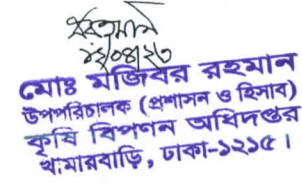 ১২/০৪/২৩
মোঃ মজিবর রহমান
উপপরিচালক (প্রশাসন ও হিসাব)
কৃষি বিপণন অধিদপ্তর
খামারবাড়ি, ঢাকা-১২১৫।